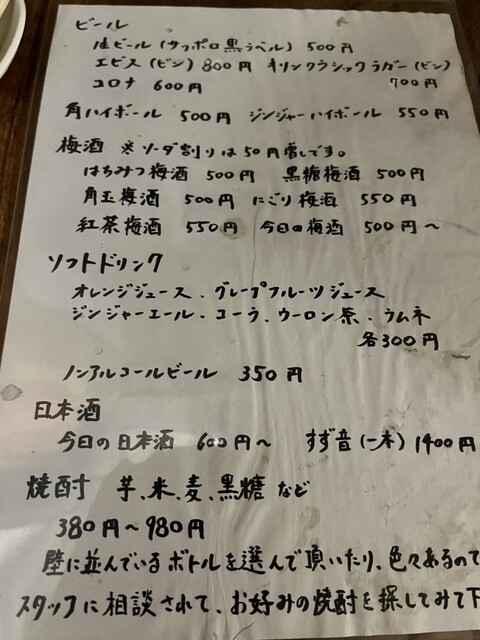 ビール
生ビール (サッポロ黒ラベル) 500円
エビス (ビン) 800円 キリンクラシックラガー (ビン)
コロナ 600円 700円
角ハイボール 500円 ジンジャーハイボール 550円
梅酒 ※ソーダ割りは50円増しです。
はちみつ梅酒 500円 黒糖梅酒 500円
角玉梅酒 500円 にごり梅酒 550円
紅茶梅酒 550円 今日の梅酒 500円〜
ソフトドリンク
オレンジジュース、グレープフルーツジュース
ジンジャーエール、コーラ、ウーロン茶、ラムネ
各300円
ノンアルコールビール 350円
日本酒
今日の日本酒 600円〜 すず音 (一本) 1400円
焼酎 芋、米、麦、黒糖 など
380円〜980円
壁に並んでいるボトルを選んで頂いたり、色々あるので
スタッフに相談されて、お好みの焼酎を探してみて下